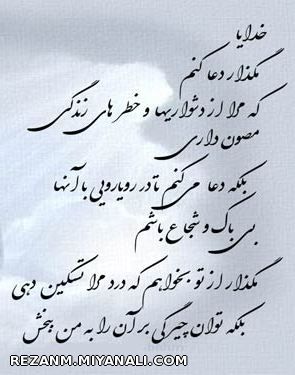 خدایا
مگذار دعا کنم
که مرا از دشواریها و خطر های زندگی
مصون داری
بلکه دعا می کنم تا در رویارویی با آنها
بی باک و شجاع باشم
مگذار از تو بخواهم که درد مرا تسکین دهی
بلکه توان چیرگی بر آن را به من ببخش
REZANM.MIYANALI.COM